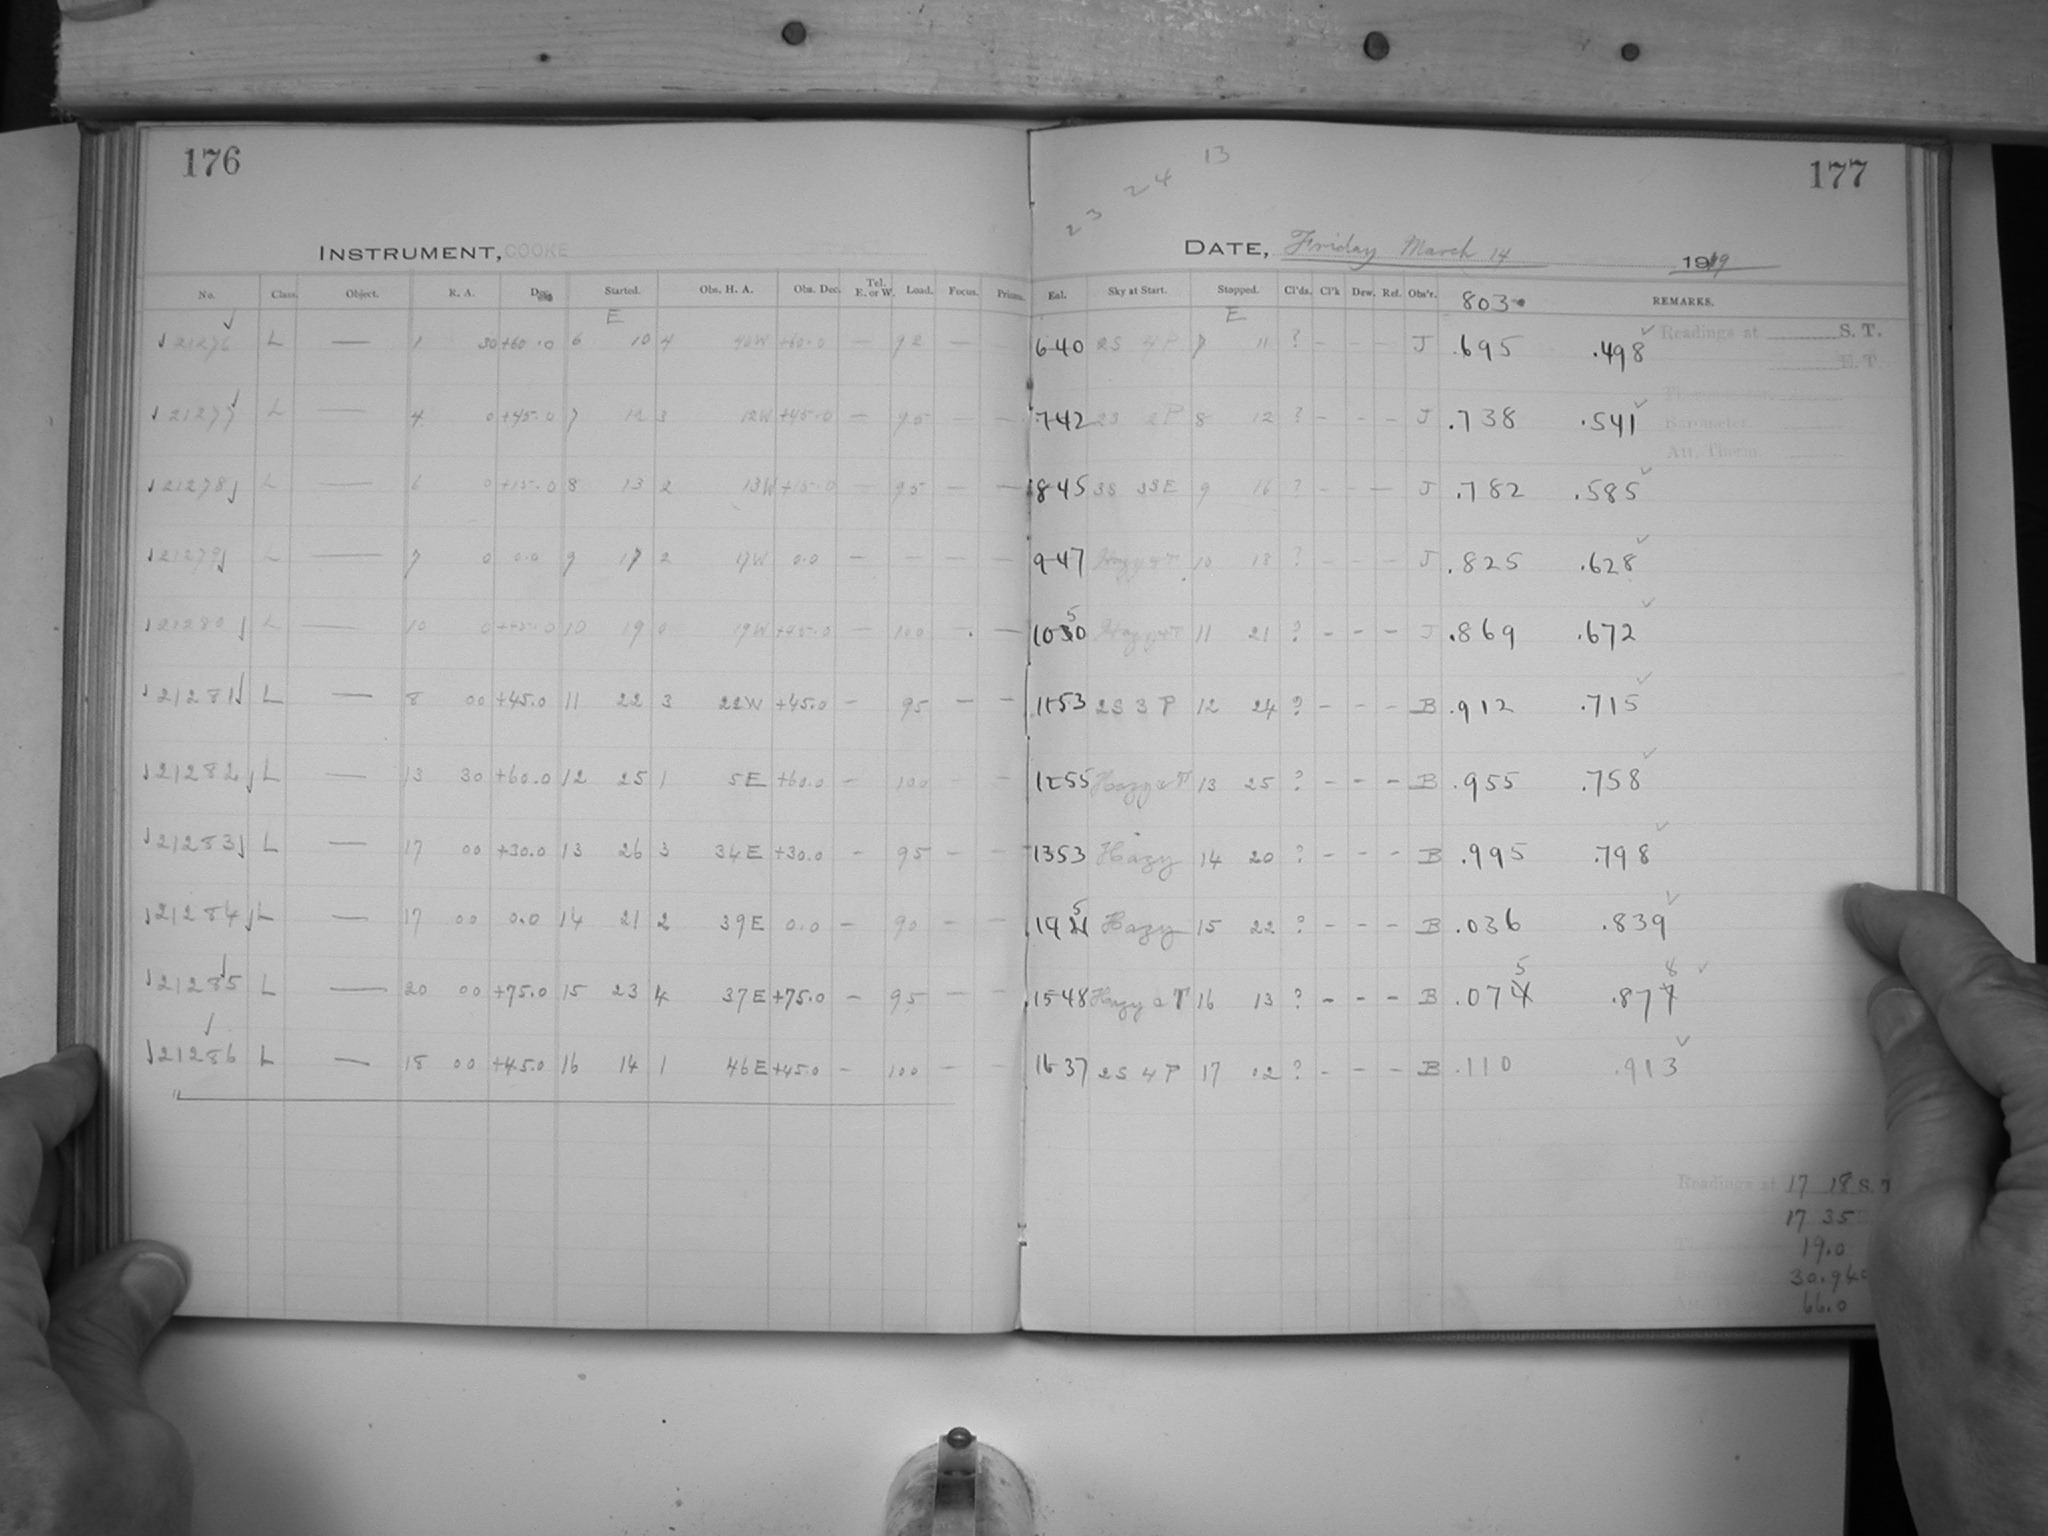 176
INSTRUMENT, COOKE
No. Class. Object. R. A. Dec. Started. Obs. H. A. Obs. Dec. Tel. E. or W. Load. Focus. Prisms.
E
21276 L — 1 30 +60.0 6 10 4 40W +60.0 — 92 — —
21277 L — 4 0 +45.0 7 12 3 12W +45.0 — 95 — —
21278 L — 6 0 +15.0 8 13 2 13W +15.0 — 95 — —
21279 L — 7 0 0.0 9 17 2 17W 0.0 — — — —
21280 L — 10 0 +45.0 10 19 0 19W +45.0 — 100 - —
21281 L — 8 00 +45.0 11 22 3 22W +45.0 — 95 — —
21282 L — 13 30 +60.0 12 25 1 5E +60.0 - 100 - -
21283 L — 17 00 +30.0 13 26 3 34E +30.0 - 95 - -
21284 L — 17 00 0.0 14 21 2 39E 0.0 - 90 - -
21285 L — 20 00 +75.0 15 23 4 37E +75.0 - 95 - -
21286 L — 18 00 +45.0 16 14 1 46E +45.0 - 100 - -
13
24
23
177
DATE, Friday March 14 1919
Eal. Sky at Start. Stopped. Cl'ds. Cl'k Dew. Ref. Obs'r. 803 REMARKS.
E
640 2S 4P 7 11 ? - - - J .695 .498
742 2S 2P 8 12 ? - - - J .738 .541
845 3S 3SE 9 16 ? - - - J .782 .585
947 Hazy & T 10 18 ? - - - J .825 .628
5
1030 Hazy & T 11 21 ? - - - J .869 .672
1153 2S 3P 12 24 ? - - - B .912 .715
1255 Hazy & T 13 25 ? - - - B .955 .758
1353 Hazy 14 20 ? - - - B .995 .798
5
Hazy 15 22 ? - - - B .036 .839
5 8
1548 Hazy & T 16 13 ? - - - B .074 .877
1637 2S 4P 17 02 ? - - - B .110 .913
Readings at S. T.
H. T.
Barometer
Att. Therm.
Readings at 17 18 S. T
17 35
19.0
30.940
66.0